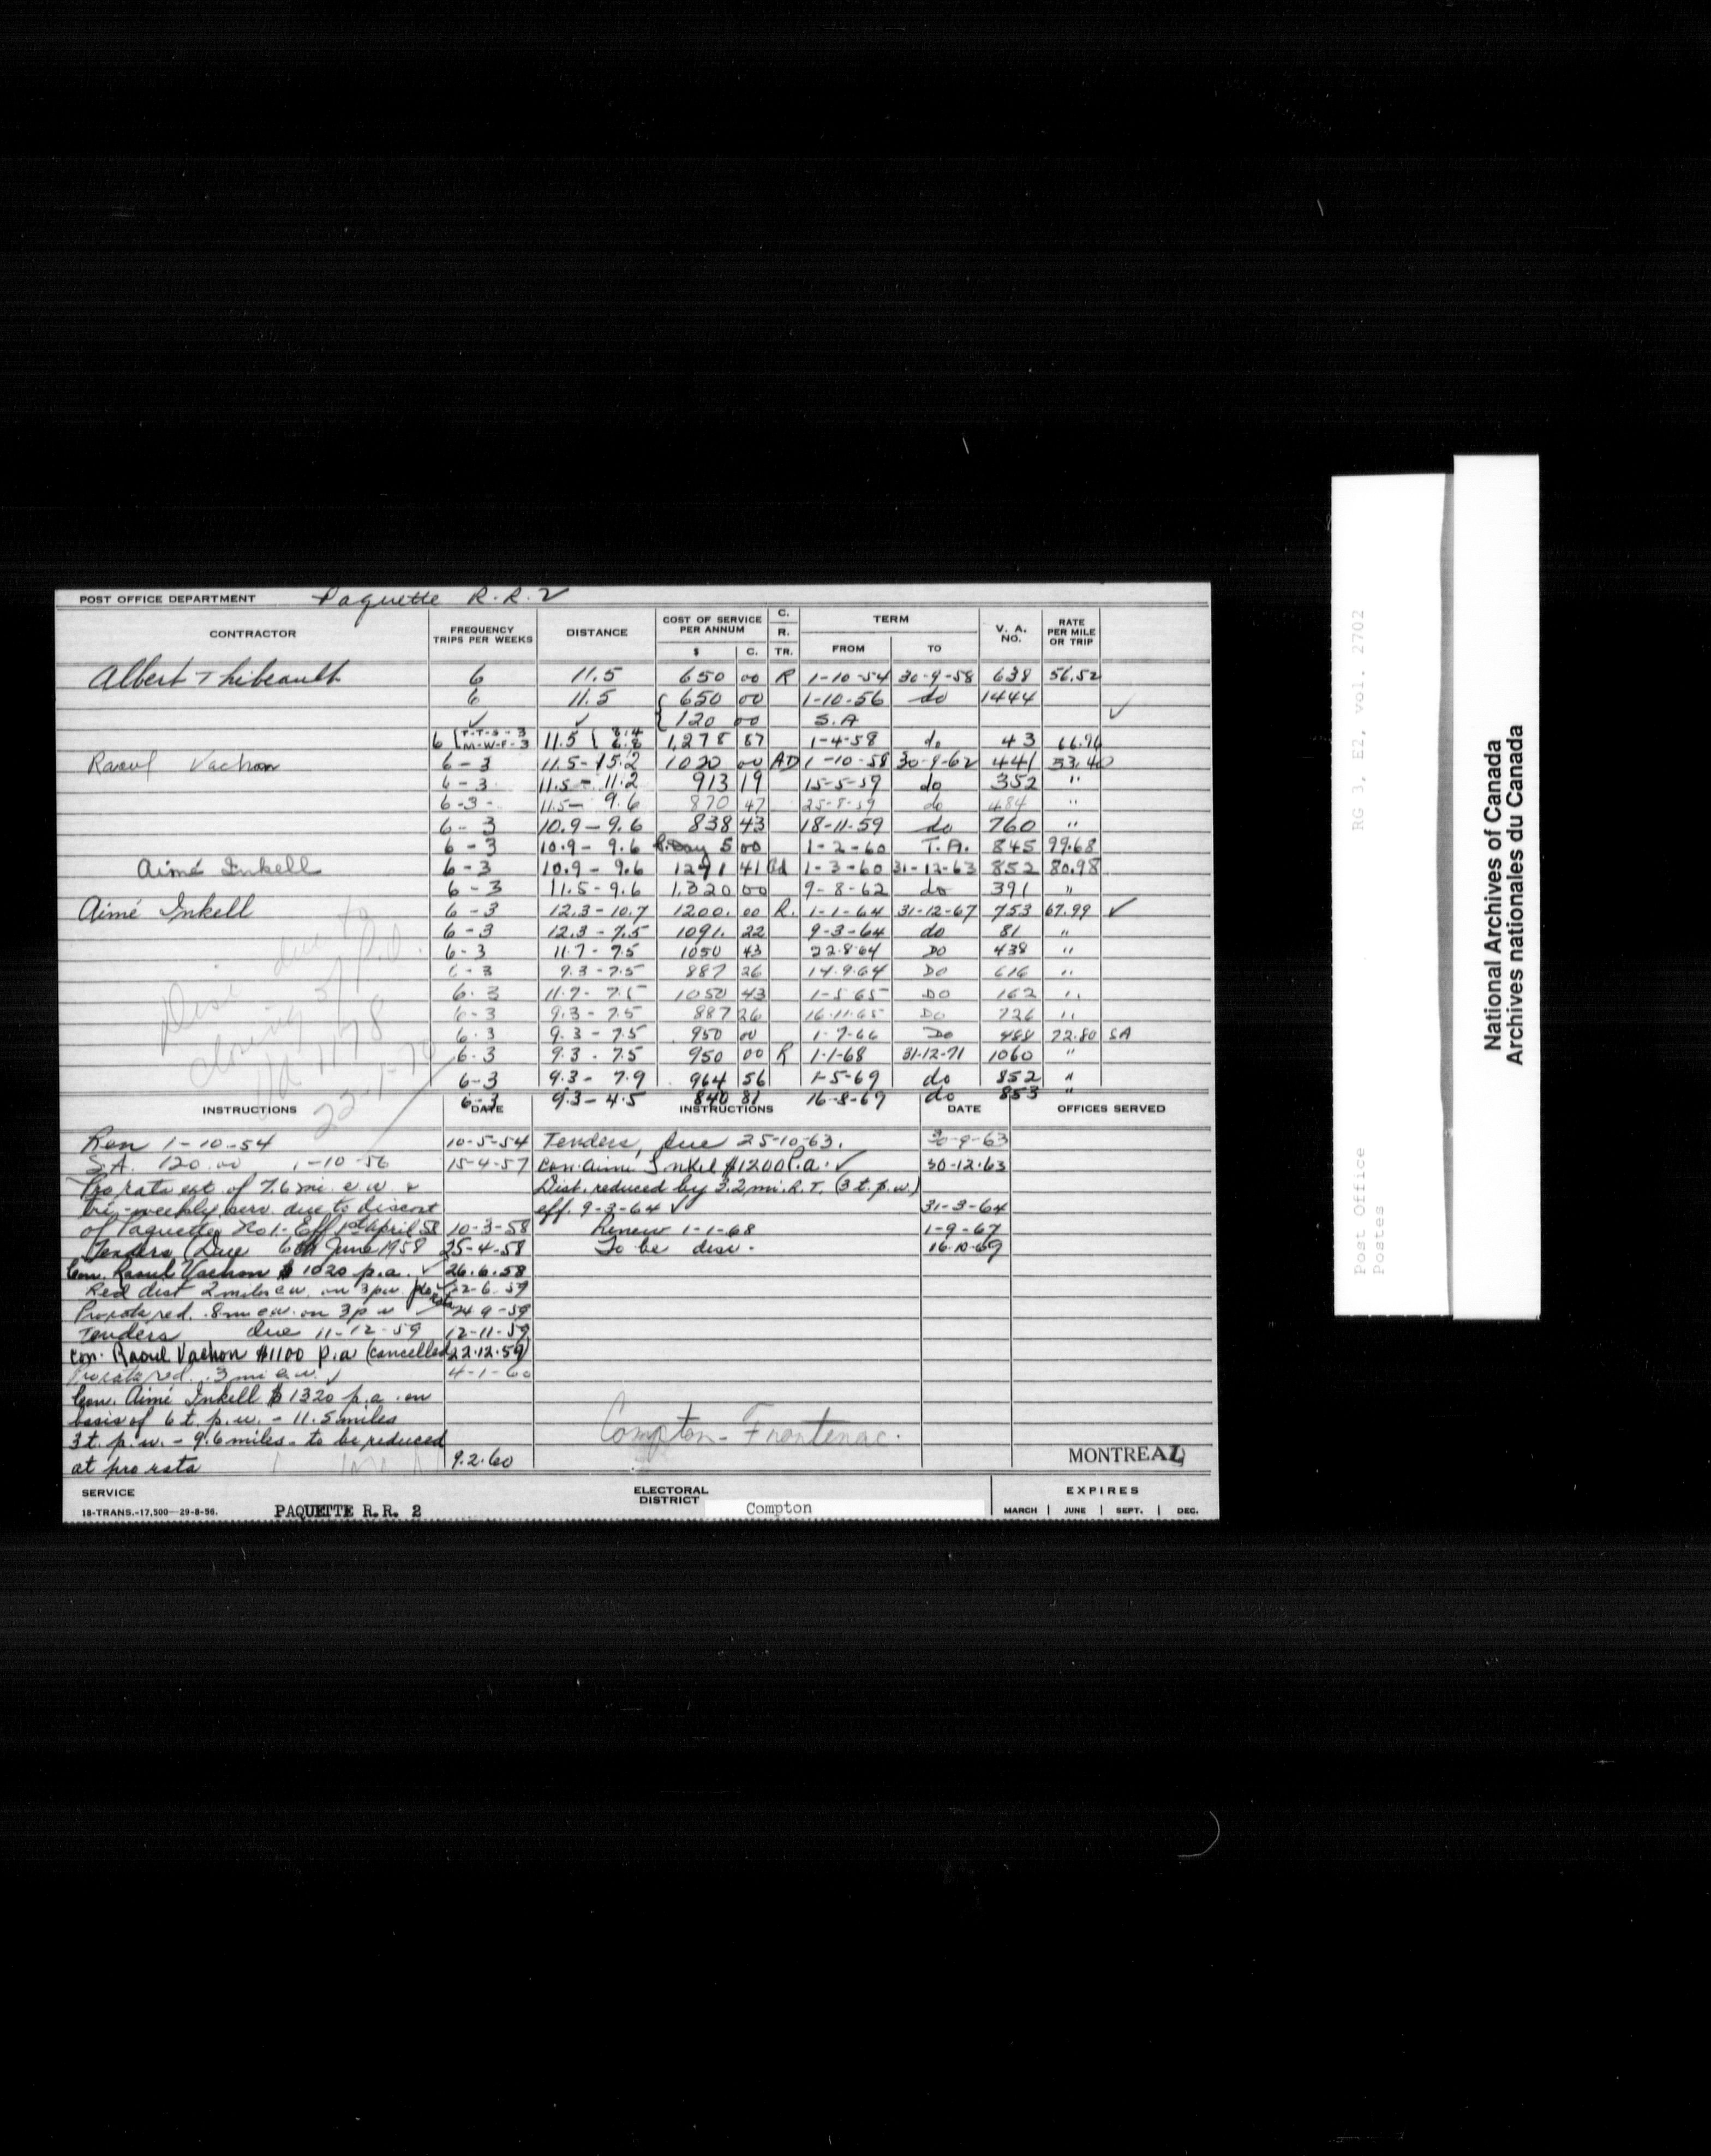 POST OFFICE DEPARTMENT Paquette R.R. 2
CONTRACTOR FREQUENCY TRIPS PER WEEKS DISTANCE COST OF SERVICE PER ANNUM $ C. C. R. TR. TERM FROM TO V. A. NO. RATE PER MILE OR TRIP
Albert Thibeault 6 11.5 650 00 R 1-10-54 30-9-58 638 56.52
6 11.5 { 650 00 1-10-56 do 1444
✓ ✓ { 120 00 S.A ✓
6 [T-T-S-3 M-W-F-3 11.5 [ 8.4 6.8 1,278 87 1-4-58 do 43 66.96
Raoul Vachon 6-3 11.5-15.2 1020 00 AD 1-10-58 30-9-62 441 53.40
6-3 11.5-11.2 913 19 15-5-59 do 352 "
6-3- 11.5-9.6 870 47 25-8-59 do 484 "
6-3 10.9-9.6 838 43 18-11-59 do 760 "
6-3 10.9-9.6 P. Day 5 00 1-2-60 T.A. 845 99.68
Aimé Inkell 6-3 10.9-9.6 1291 41 Ad 1-3-60 31-12-63 852 80.98
6-3 11.5-9.6 1,320 00 9-8-62 do 391 "
Aimé Inkell 6-3 12.3-10.7 1200. 00 R. 1-1-64 31-12-67 753 67.99 ✓
6-3 12.3-7.5 1091. 22 9-3-64 do 81 "
6-3 11.7-7.5 1050 43 22.8.64 DO 438 "
6-3 9.3-7.5 887 26 14.9.64 DO 616 "
6.3 11.7-7.5 1050 43 1-5-65 DO 162 "
6-3 9.3-7.5 887 26 16.11.65 DO 726 "
6.3 9.3-7.5 950 00 1-7-66 Do 488 72.80 SA
6.3 9.3-7.5 950 00 R 1-1-68 31-12-71 1060 "
6-3 9.3-7.9 964 56 1-5-69 do 852 "
6-3 9.3-4.5 840 81 16-8-69 do 853 "
due to
closing of P.O.
INSTRUCTIONS DATE INSTRUCTIONS DATE OFFICES SERVED
Ren 1-10-54 10-5-54 Tenders, due 25-10-63. 30-9-63
S.A. 120.00 1-10-56 15-4-57 Con. Aimé Inkel $1200 P.a. ✓ 30-12-63
Pro rata ext. of 7.6 mi. e.w. & Dist. reduced by 3.2 mi. R.T. (3 t.p.w.)
tri-weekly serv. due to discont eff. 9-3-64 ✓ 31-3-64
of Paquette No 1-Eff 1st April 58 10-3-58 Renew 1-1-68 1-9-67
Tenders (Due 6th June 1958 25-4-58 To be disc. 16.10.69
Con. Raoul Vachon $1020 p.a. ✓ 26.6.58
Red dist 2 miles e.w. on 3 p.w. pro rata 22-6-59
Prorata red. .8 mi e.w. on 3 p w 24-9-59
Tenders due 11-12-59 12-11-59
Con. Raoul Vachon $1100 p.a (cancelled) 22.12.59
Prorata red. .3 mi e.w. ✓ 4-1-60
Con. Aimé Inkell $1320 p.a. on
basis of 6 t. p.w. - 11.5 miles
3 t. p.w. - 9.6 miles - to be reduced Compton-Frontenac.
at pro rata 9.2.60 MONTREAL
SERVICE ELECTORAL DISTRICT Compton EXPIRES
18-TRANS.-17,500—29-8-56. PAQUETTE R.R. 2 MARCH | JUNE | SEPT. | DEC.
RG 3, E2, vol. 2702
Post Office
Postes
National Archives of Canada
Archives nationales du Canada